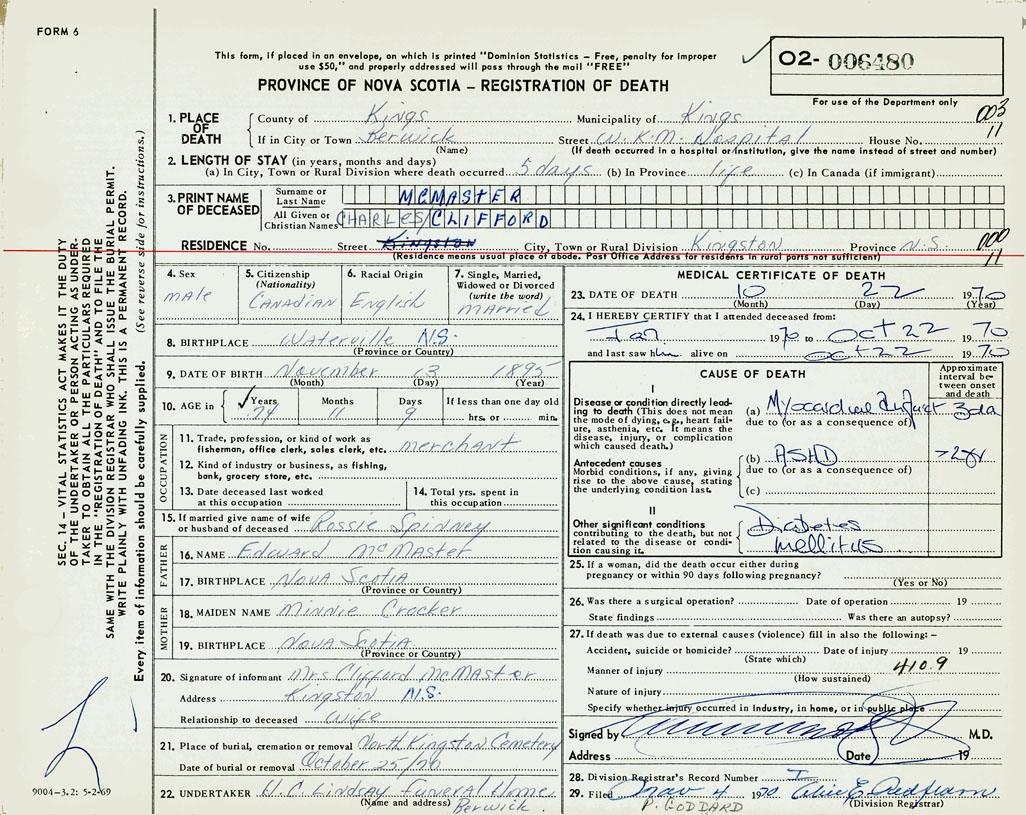 FORM 6
This form, if placed in an envelope, on which is printed "Dominion Statistics – Free, penalty for improper
use $50," and properly addressed will pass through the mail "FREE"
PROVINCE OF NOVA SCOTIA – REGISTRATION OF DEATH
02- 006480
For use of the Department only
003
11
1. PLACE OF DEATH
County of Kings Municipality of Kings
If in City or Town Berwick Street W.K.M. Hospital House No.
(Name) (If death occurred in a hospital or institution, give the name instead of street and number)
2. LENGTH OF STAY (in years, months and days)
(a) In City, Town or Rural Division where death occurred 5 days (b) In Province life (c) In Canada (if immigrant)
3. PRINT NAME OF DECEASED
Surname or Last Name MCMASTER
All Given or Christian Names CHARLES/CLIFFORD
RESIDENCE No. Street Kingston City, Town or Rural Division Kingston Province N.S.
(Residence means usual place of abode. Post Office Address for residents in rural parts not sufficient)
000
11
4. Sex
male
5. Citizenship
(Nationality)
CANADIAN
6. Racial Origin
English
7. Single, Married,
Widowed or Divorced
(write the word)
MARRIED
8. BIRTHPLACE Waterville N.S.
(Province or Country)
9. DATE OF BIRTH November 13 1895
(Month) (Day) (Year)
10. AGE in Years Months Days If less than one day old
74 11 9 hrs. or min.
OCCUPATION
11. Trade, profession, or kind of work as
fisherman, office clerk, sales clerk, etc. merchant
12. Kind of industry or business, as fishing,
bank, grocery store, etc.
13. Date deceased last worked
at this occupation
14. Total yrs. spent in
this occupation
15. If married give name of wife
or husband of deceased Rossie Spinney
FATHER
16. NAME Edward McMaster
17. BIRTHPLACE Nova Scotia
(Province or Country)
MOTHER
18. MAIDEN NAME Minnie Crocker
19. BIRTHPLACE Nova Scotia
(Province or Country)
20. Signature of informant Mrs Clifford McMaster
Address Kingston N.S.
Relationship to deceased wife
21. Place of burial, cremation or removal North Kingston Cemetery
Date of burial or removal October 25/70
22. UNDERTAKER H.C. Lindsay Funeral Home.
(Name and address) Berwick
MEDICAL CERTIFICATE OF DEATH
23. DATE OF DEATH 10 22 1970
(Month) (Day) (Year)
24. I HEREBY CERTIFY that I attended deceased from:
Jan 1970 to Oct 22 1970
and last saw him alive on Oct 22 1970
CAUSE OF DEATH
Approximate
interval be-
tween onset
and death
I
Disease or condition directly lead-
ing to death (This does not mean
the mode of dying, e.g., heart fail-
ure, asthenia, etc. It means the
disease, injury, or complication
which caused death.)
(a) Myocardial Infarct 3da
due to (or as a consequence of)
Antecedent causes
Morbid conditions, if any, giving
rise to the above cause, stating
the underlying condition last.
(b) ASHD >2yr
due to (or as a consequence of)
(c)
II
Other significant conditions
contributing to the death, but not
related to the disease or condi-
tion causing it.
Diabetes
Mellitus
25. If a woman, did the death occur either during
pregnancy or within 90 days following pregnancy?
(Yes or No)
26. Was there a surgical operation? Date of operation 19
State findings Was there an autopsy?
27. If death was due to external causes (violence) fill in also the following: –
Accident, suicide or homicide? Date of injury 19
(State which)
Manner of injury 410.9
(How sustained)
Nature of injury
Specify whether injury occurred in industry, in home, or in public place
Signed by M.D.
Address Date 19
28. Division Registrar's Record Number
29. Filed Nov 4 1970
(Division Registrar)
P. GODDARD
SEC. 14 – VITAL STATISTICS ACT MAKES IT THE DUTY
OF THE UNDERTAKER OR PERSON ACTING AS UNDER-
TAKER TO OBTAIN ALL THE PARTICULARS REQUIRED
IN THE "REGISTRATION OF DEATH" AND TO FILE THE
SAME WITH THE DIVISION REGISTRAR WHO SHALL ISSUE THE BURIAL PERMIT.
WRITE PLAINLY WITH UNFADING INK. THIS IS A PERMANENT RECORD.
Every item of information should be carefully supplied. (See reverse side for instructions.)
9004-3.2: 5-2-69